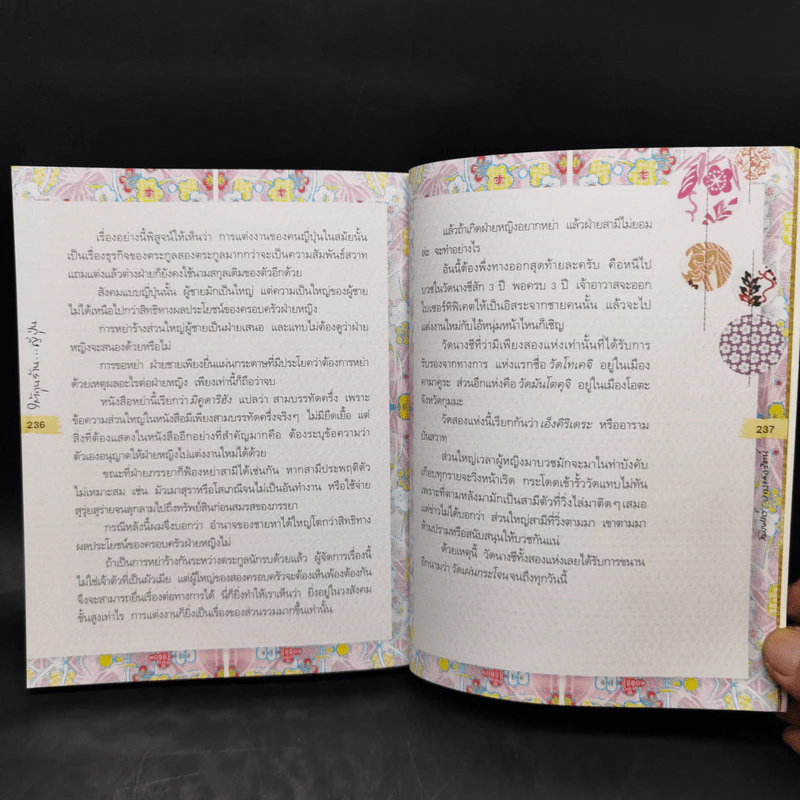 เรื่องอย่างนี้พิสูจน์ให้เห็นว่า การแต่งงานของคนญี่ปุ่นในสมัยนั้น
เป็นเรื่องธุรกิจของตระกูลสองตระกูลมากกว่าจะเป็นความสัมพันธ์สวาท
แถมแต่งแล้วต่างฝ่ายก็ยังคงใช้นามสกุลเดิมของตัวอีกด้วย
สังคมแบบญี่ปุ่นนั้น ผู้ชายมักเป็นใหญ่ แต่ความเป็นใหญ่ของผู้ชาย
ไม่ได้เหนือไปกว่าสิทธิทางผลประโยชน์ของครอบครัวฝ่ายหญิง
การหย่าร้างส่วนใหญ่ผู้ชายเป็นฝ่ายเสนอ และแทบไม่ต้องดูว่าฝ่าย
หญิงจะสนองด้วยหรือไม่
การขอหย่า ฝ่ายชายเพียงยื่นแผ่นกระดาษที่มีประโยคว่าต้องการหย่า
ด้วยเหตุผลอะไรต่อฝ่ายหญิง เพียงเท่านี้ก็ถือว่าจบ
หนังสือหย่านี้เรียกว่า มิคูดาริฮัง แปลว่า สามบรรทัดครึ่ง เพราะ
ข้อความส่วนใหญ่ในหนังสือมีเพียงสามบรรทัดครึ่งจริงๆ ไม่มียืดเยื้อ แต่
สิ่งที่ต้องแสดงในหนังสืออีกอย่างที่สำคัญมากคือ ต้องระบุข้อความว่า
ตัวเองอนุญาตให้ฝ่ายหญิงไปแต่งงานใหม่ได้ด้วย
ขณะที่ฝ่ายภรรยาก็ฟ้องหย่าสามีได้เช่นกัน หากสามีประพฤติตัว
ไม่เหมาะสม เช่น มัวเมาสุราหรือโสเภณีจนไม่เป็นอันทำงาน หรือใช้จ่าย
สุรุ่ยสุร่ายจนลุกลามไปถึงทรัพย์สินก่อนสมรสของภรรยา
กรณีหลังนี้ผมจึงบอกว่า อำนาจของชายหาได้ใหญ่โตกว่าสิทธิทาง
ผลประโยชน์ของครอบครัวฝ่ายหญิงไม่
ถ้าเป็นการหย่าร้างกันระหว่างตระกูลนักรบด้วยแล้ว ผู้จัดการเรื่องนี้
ไม่ใช่เจ้าตัวที่เป็นผัวเมีย แต่ผู้ใหญ่ของสองครอบครัวจะต้องเห็นพ้องต้องกัน
จึงจะสามารถยื่นเรื่องต่อทางการได้ นี่ก็ยิ่งทำให้เราเห็นว่า ยิ่งอยู่ในวงสังคม
ชั้นสูงเท่าไร การแต่งงานก็ยิ่งเป็นเรื่องของส่วนรวมมากขึ้นเท่านั้น
236
แล้วถ้าเกิดฝ่ายหญิงอยากหย่า แล้วฝ่ายสามีไม่ยอม
ล่ะ จะทำอย่างไร
อันนี้ต้องพึ่งทางออกสุดท้ายละครับ คือหนีไป
บวชในวัดนางชีสัก 3 ปี พอครบ 3 ปี เจ้าอาวาสจะออก
ใบเซอร์ทิฟิเคตให้เป็นอิสระจากชายคนนั้น แล้วจะไป
แต่งงานใหม่กับไอ้หนุ่มหน้าไหนก็เชิญ
วัดนางชีที่ว่ามีเพียงสองแห่งเท่านั้นที่ได้รับการ
รับรองจากทางการ แห่งแรกชื่อ วัดโทเคจิ อยู่ในเมือง
คามาคูระ ส่วนอีกแห่งคือ วัดมันโตคุจิ อยู่ในเมืองโอตะ
จังหวัดกุมมะ
วัดสองแห่งนี้เรียกกันว่า เอ็งคิริเดระ หรืออาราม
บั่นสวาท
ส่วนใหญ่เวลาผู้หญิงมาบวชมักจะมาในท่าบังคับ
เกือบทุกรายจะวิ่งหน้าเริด กระโดดเข้ารั้ววัดแทบไม่ทัน
เพราะที่ตามหลังมามักเป็นสามีตัวที่วิ่งไล่มาติดๆ เสมอ
แต่ข่าวไม่ได้บอกว่า ส่วนใหญ่สามีที่วิ่งตามมา เขาตามมา
ห้ามปรามหรือสนับสนุนให้บวชกันแน่
ด้วยเหตุนี้ วัดนางชีทั้งสองแห่งเลยได้รับการขนาน
อีกนามว่า วัดเผ่นกระโจน จนถึงทุกวันนี้
237